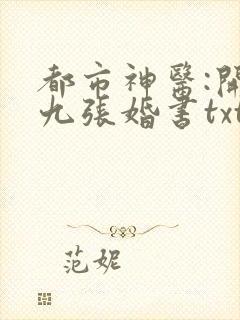 都市神醫:開
九張婚書txt
范妮